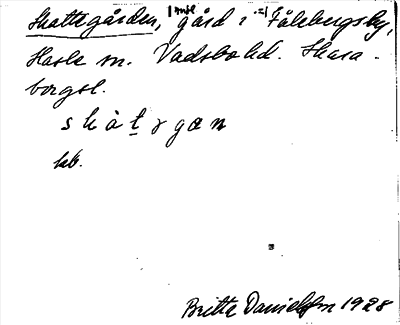 Skattegården, 1 mtl gård i Fålebergsby,
Hasle sn. Vadsbo hd. Skara-
borgs l.
s k à t ɤ g æ n
hb.
Britta Danielson 1928